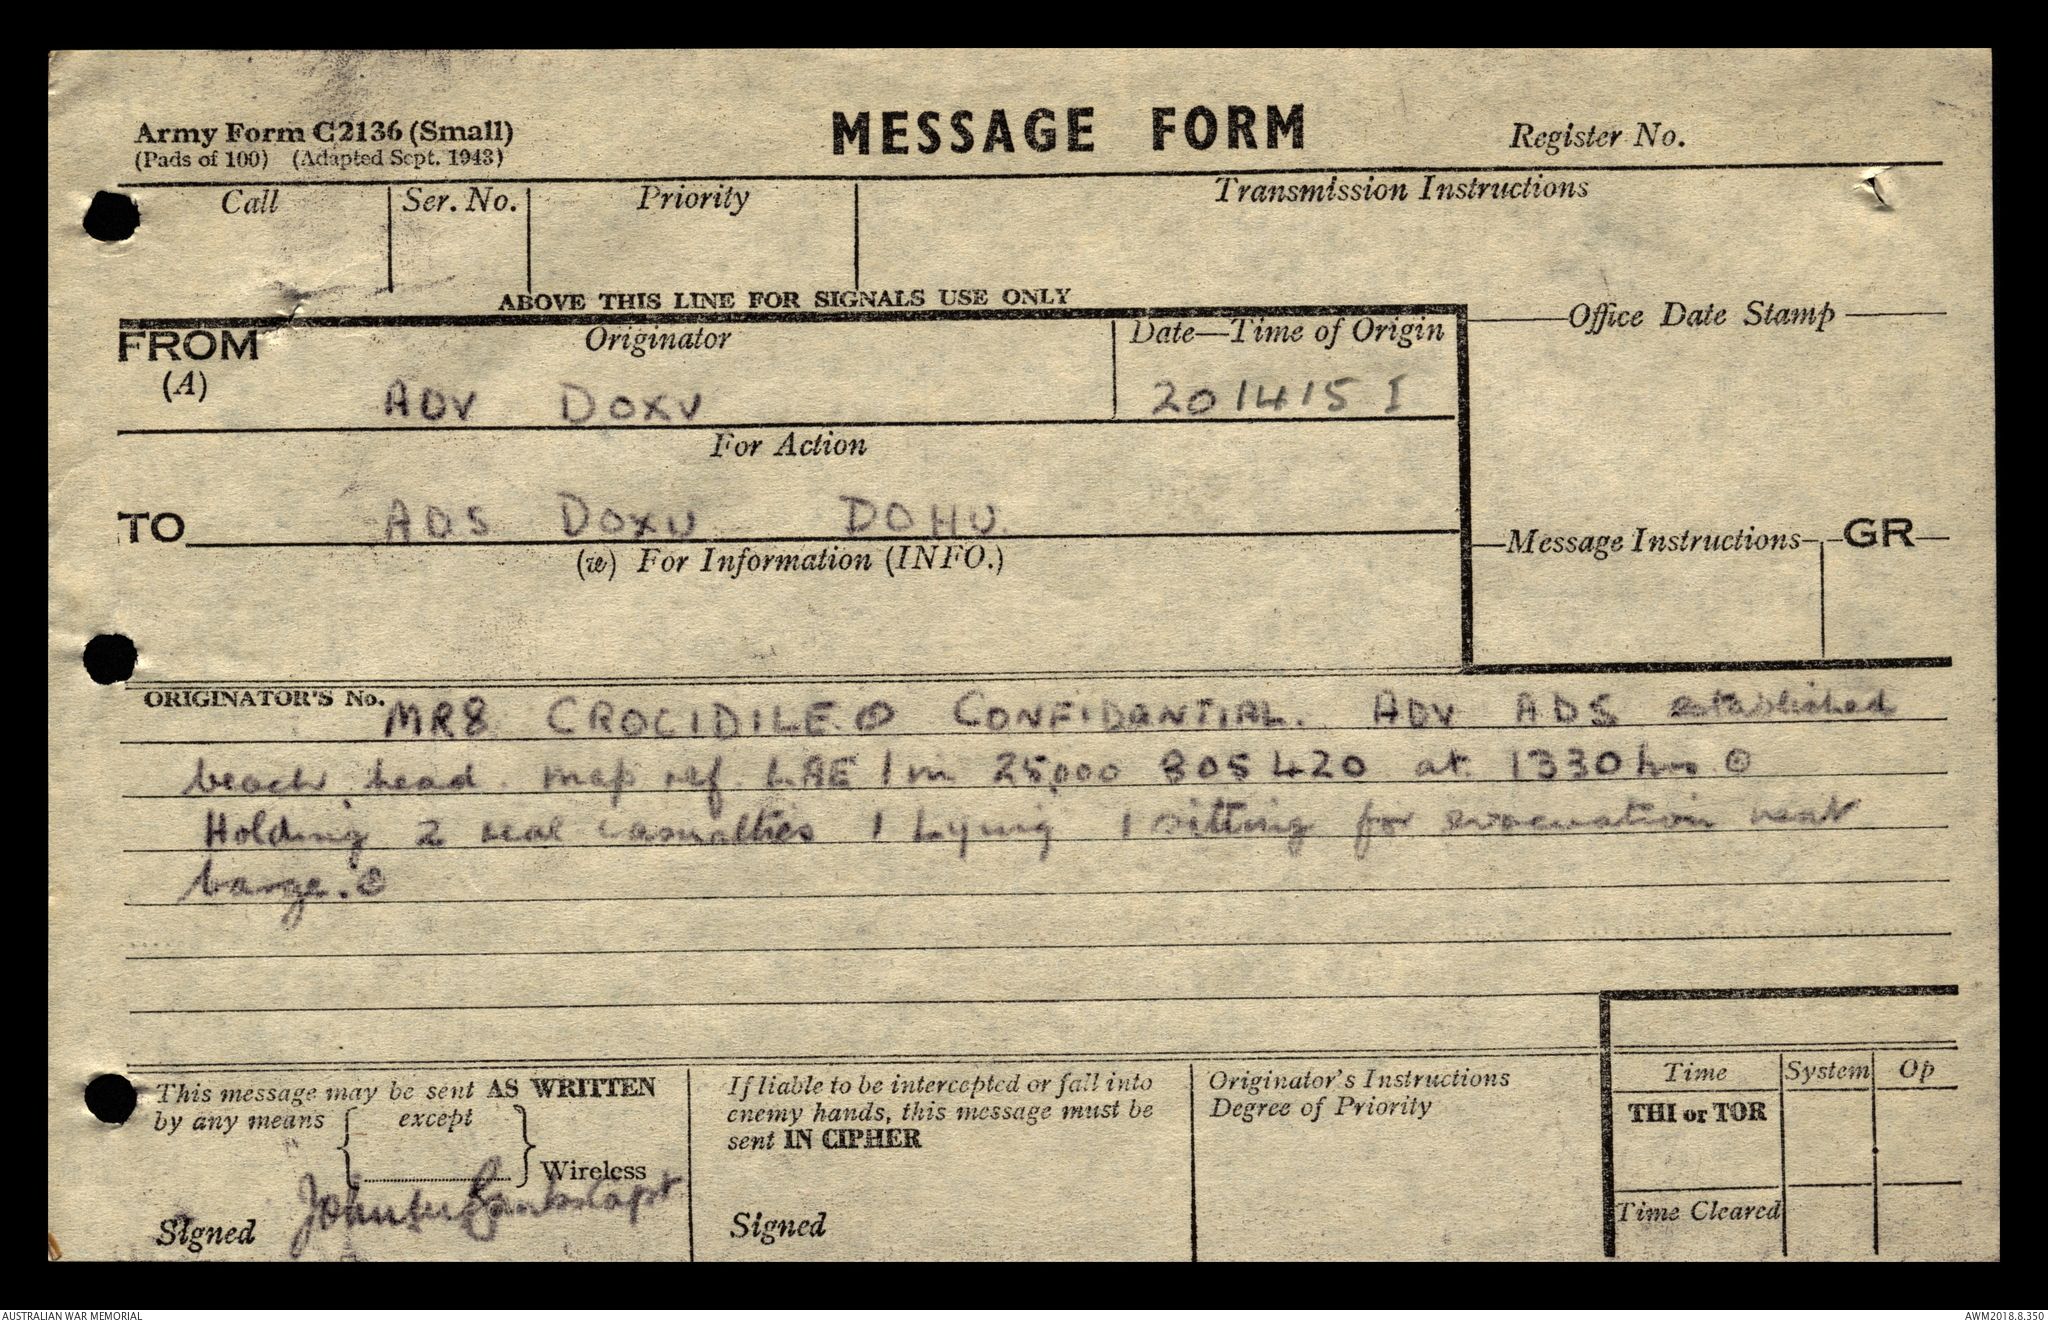 Army Form C2136 (Small)
(Pads of 100) (Adapted Sept. 1943)
MESSAGE FORM
Register No.
Call
Ser. No.
Priority
Transmission Instructions
ABOVE THIS LINE FOR SIGNALS USE ONLY
FROM
(A)
Originator
Date—Time of Origin
Office Date Stamp
ADV DOXU
201415 I
For Action
TO
ADS DOXU DOHU
(w) For Information (INFO.)
Message Instructions
GR
ORIGINATOR'S No.
MR8 CROCIDILE. CONFIDANTIAL. ADV ADS established
beach head. map ref LAE 1 in 25,000 805420 at 1330 hrs
Holding 2 real casualties 1 Lying 1 sitting for evacuation next
barge.
This message may be sent AS WRITTEN
by any means
except
Wireless
Signed
Capt
If liable to be intercepted or fall into
enemy hands, this message must be
sent IN CIPHER
Signed
Originator's Instructions
Degree of Priority
Time
System
Op
THI or TOR
Time Cleared
AUSTRALIAN WAR MEMORIAL
AWM2018.8.350